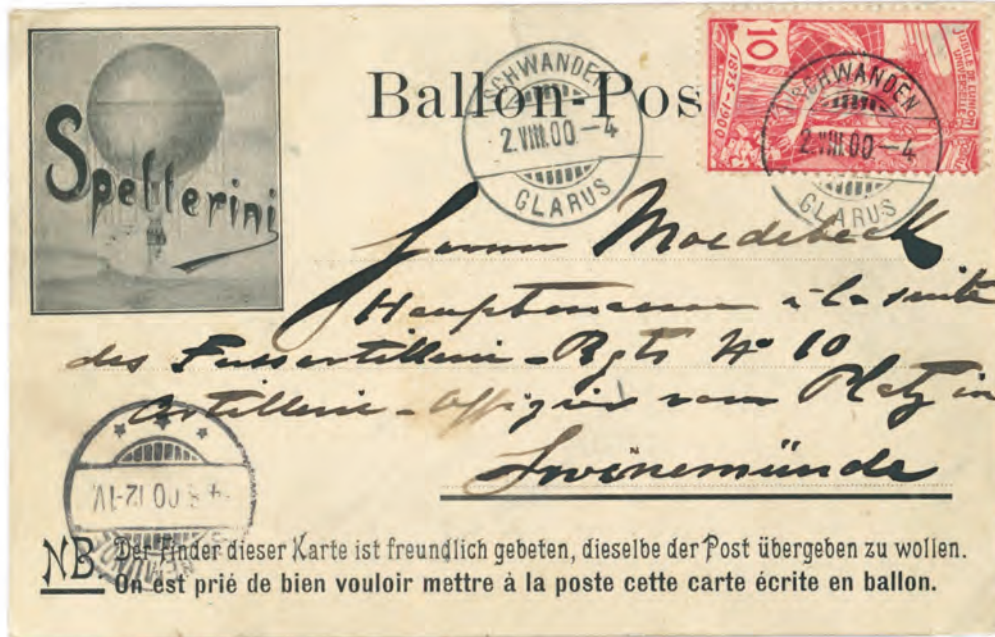 Spelterini
Ballon-Pos
SCHWANDEN
2.VIII.00.–4
GLARUS
10
1875-1900
JUBILÉ DE L'UNION
UNIVERSELLE
SCHWANDEN
2.VIII.00–4
GLARUS
Herrn Moedebeck
Hauptmann à la suite
des Fussartillerie-Rgts No 10
Artillerie-Offizier vom Platz in
Swinemünde
00 12-1V.
NB. Der Finder dieser Karte ist freundlich gebeten, dieselbe der Post übergeben zu wollen.
On est prié de bien vouloir mettre à la poste cette carte écrite en ballon.